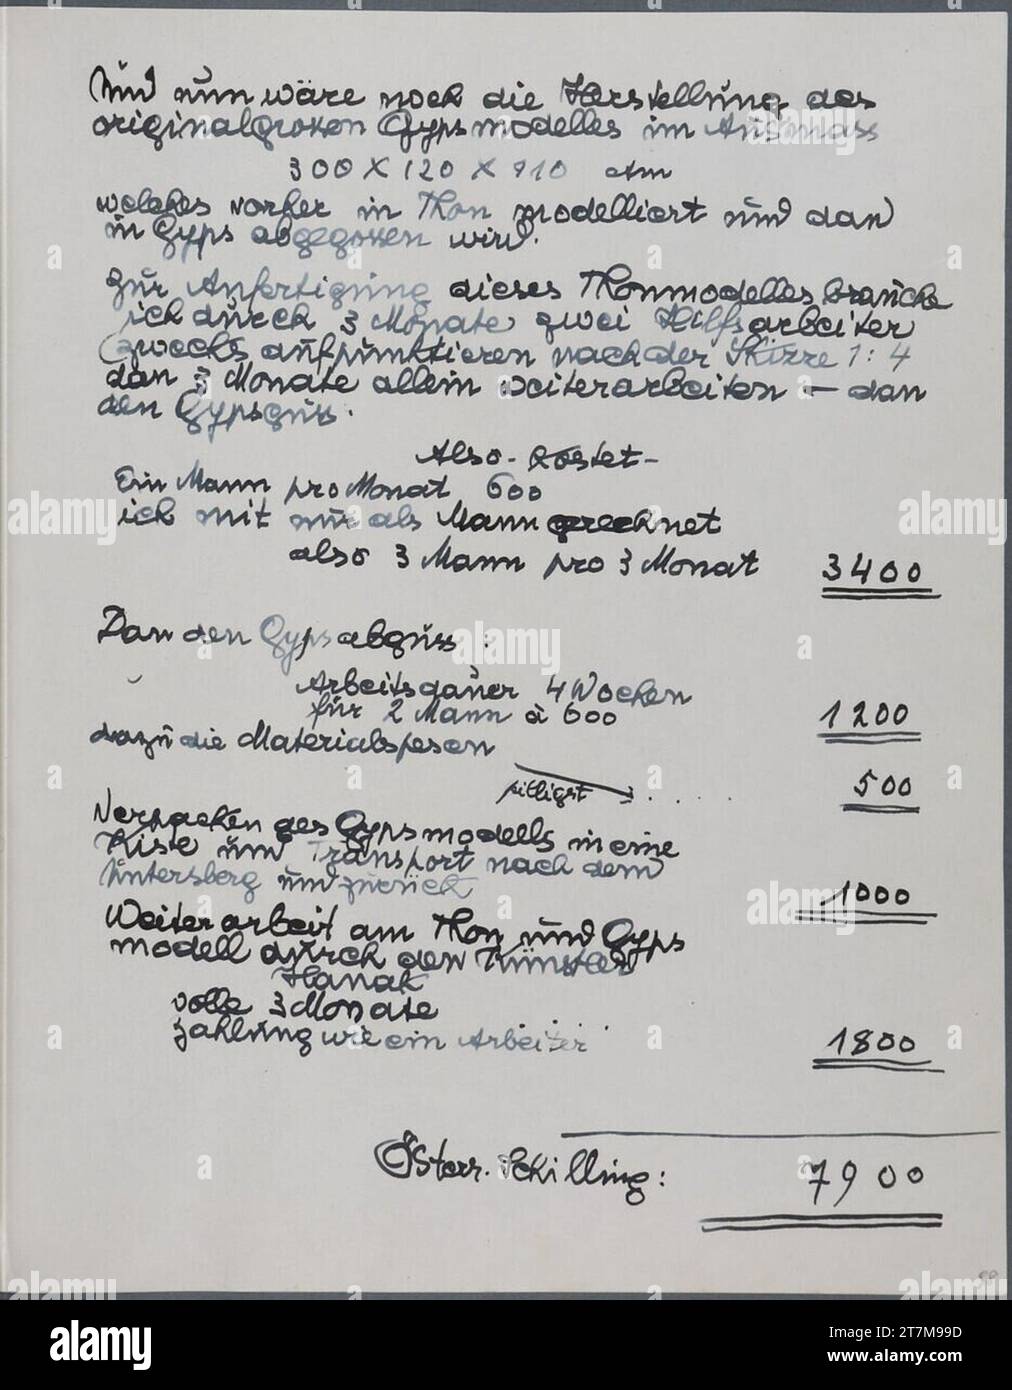 Und nun wäre noch die Herstellung des
originalgrossen Gypsmodelles im Ausmass
300 X 120 X 910 ctm
welches vorher in Thon modelliert und dan
in Gyps abgegossen wird.
Zur Anfertigung dieses Thonmodelles brauche
ich durch 3 Monate zwei Hilfsarbeiter
(zwecks aufpunktieren nach der Skizze 1:4
dan 3 Monate allein weiterarbeiten – dan
den Gypsguss.
Also - kostet -
Ein Mann pro Monat 600
ich mit nur als Mann gerechnet
also 3 Mann pro 3 Monat 3400
Dan den Gypsabguss :
Arbeitsdauer 4 Wochen
für 2 Mann à 600 1200
dazu die Materialspesen
billigst . . . . 500
Verpacken des Gypsmodells in eine
Kiste und Transport nach dem
Untersberg und zurück 1000
Weiterarbeit am Thon und Gyps
modell durch den Künstler
Hanak
volle 3 Monate
Zahlung wie ein Arbeiter . . . . 1800
Österr. Schilling: 7900
alamy
Image ID: 2T7M99D
www.alamy.com